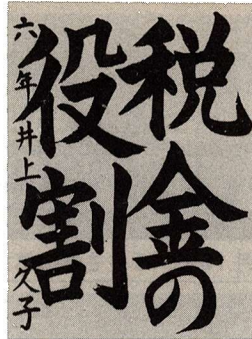 税金の
役割
六年井上久子